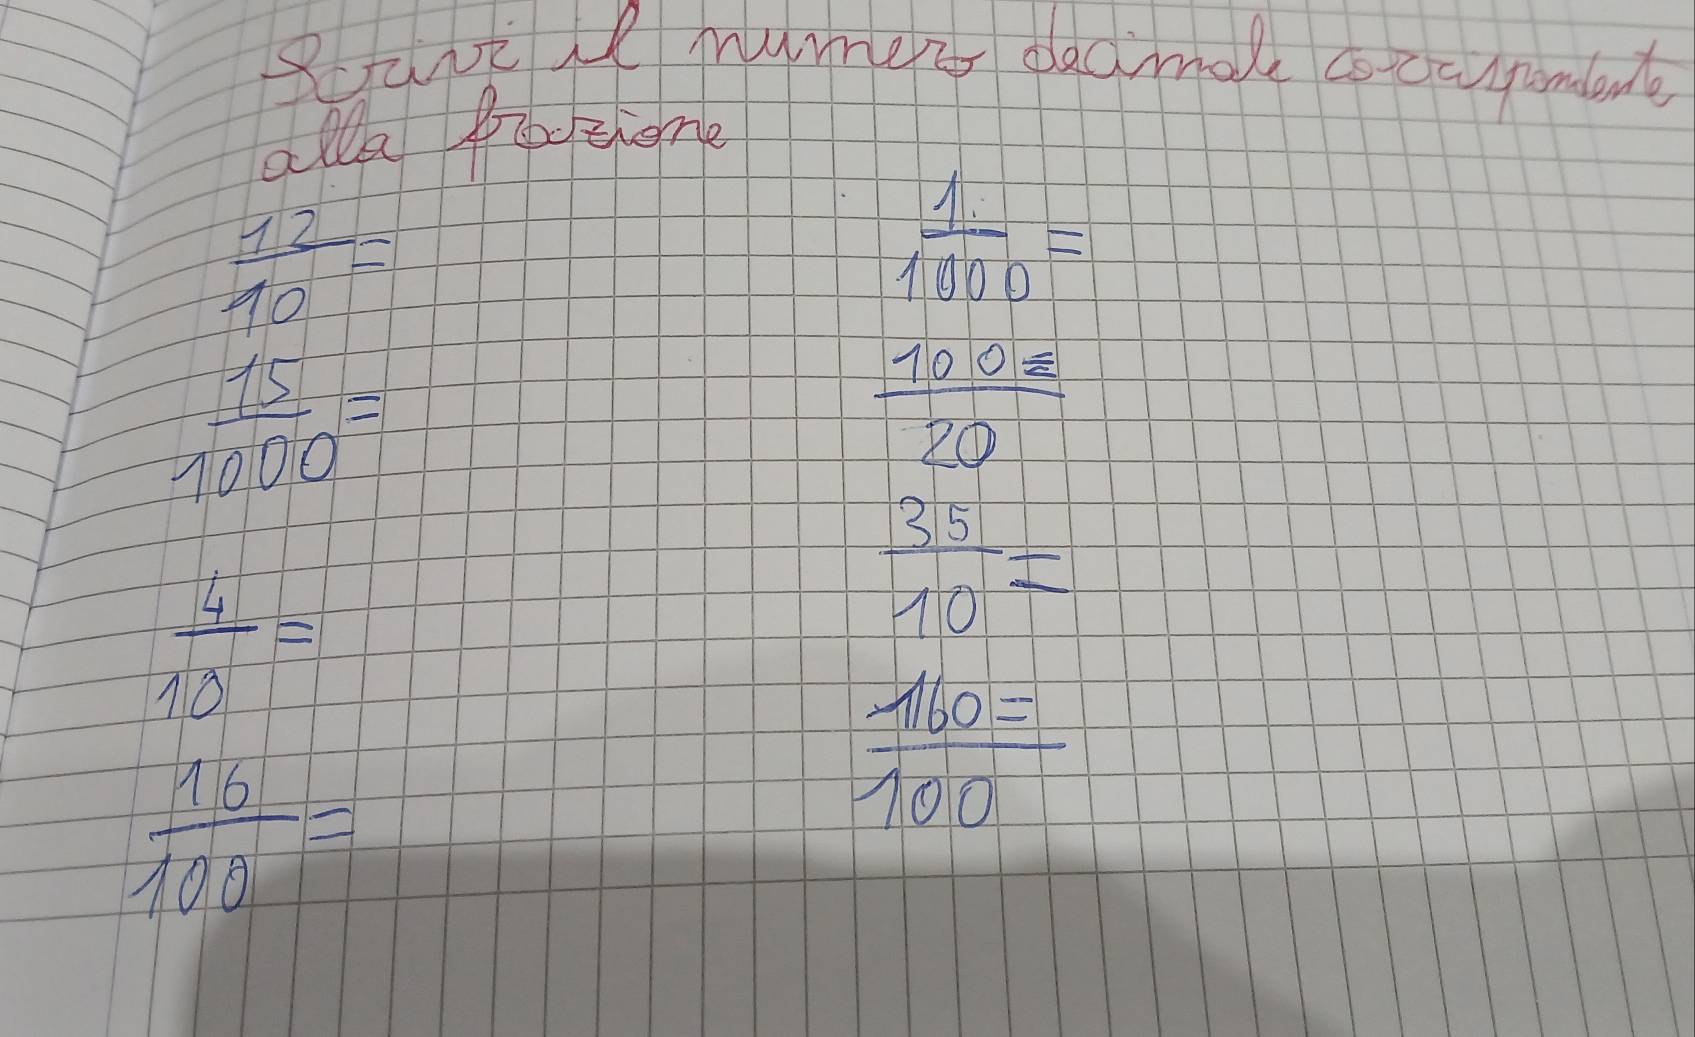 Scrivi il numero decimale corrispondente
alla frazione
12/10 =
15/1000 =
4/10 =
16/100 =
1/1000 =
100/20 =
35/10 =
160/100 =